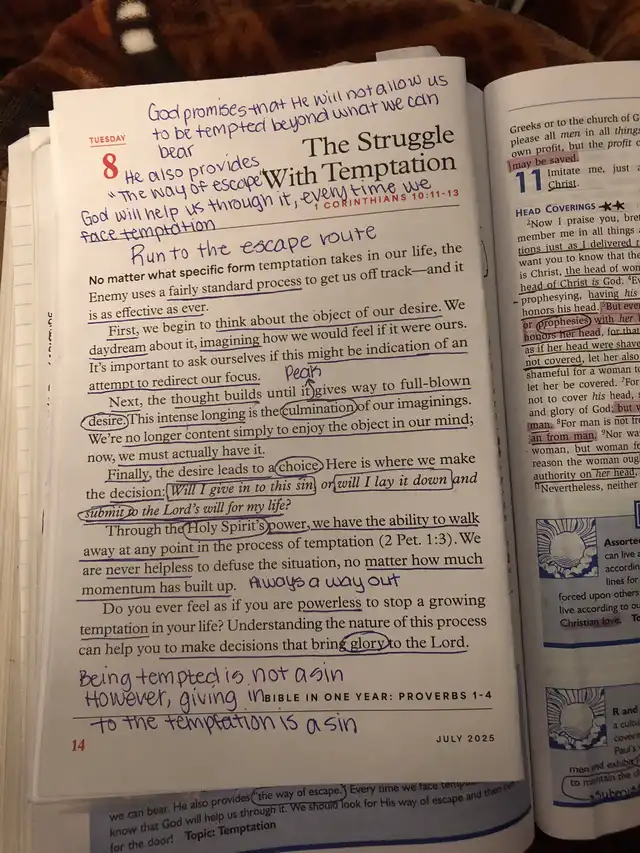 God promises that He will not allow us
to be tempted beyond what we can
bear
TUESDAY
8
The Struggle
With Temptation
He also provides
"The way of escape"
God will help us through it, every time we
face temptation
1 CORINTHIANS 10:11-13
Run to the escape route
No matter what specific form temptation takes in our life, the
Enemy uses a fairly standard process to get us off track—and it
is as effective as ever.
First, we begin to think about the object of our desire. We
daydream about it, imagining how we would feel if it were ours.
It's important to ask ourselves if this might be indication of an
attempt to redirect our focus.
Peak
Next, the thought builds until it gives way to full-blown
desire. This intense longing is the culmination of our imaginings.
We're no longer content simply to enjoy the object in our mind;
now, we must actually have it.
Finally, the desire leads to a choice. Here is where we make
the decision: Will I give in to this sin or will I lay it down and
submit to the Lord's will for my life?
Through the Holy Spirit's power, we have the ability to walk
away at any point in the process of temptation (2 Pet. 1:3). We
are never helpless to defuse the situation, no matter how much
momentum has built up.
Always a way out
Do you ever feel as if you are powerless to stop a growing
temptation in your life? Understanding the nature of this process
can help you to make decisions that bring glory to the Lord.
Being tempted is not a sin
However, giving in
to the temptation is a sin
BIBLE IN ONE YEAR: PROVERBS 1-4
14
JULY 2025
we can bear. He also provides "the way of escape." Every time we face
know that God will help us through it. We should look for His way of escape and then
for the door! Topic: Temptation
Greeks or to the church of
please all men in all things
own profit, but the profit
may be saved.
11 Imitate me, just
Christ.
HEAD COVERINGS
Now I praise you,
member me in all things
tions just as I delivered
want you to know that the
is Christ, the head of
head of Christ is God.
prophesying, having his
honors his head. But
or prophesies with her
honors her head, for that
as if her head were
not covered, let her also
shameful for a woman to
let her be covered. For
not to cover his head,
and glory of God; but
man. For man is not
an from man. Nor
woman, but woman
reason the woman
authority on her head,
Nevertheless, neither
Assorted
can live
according
lines for
forced upon others
live according to
Christian love.
R and
a cultu
Paul's
men and
to maintain the